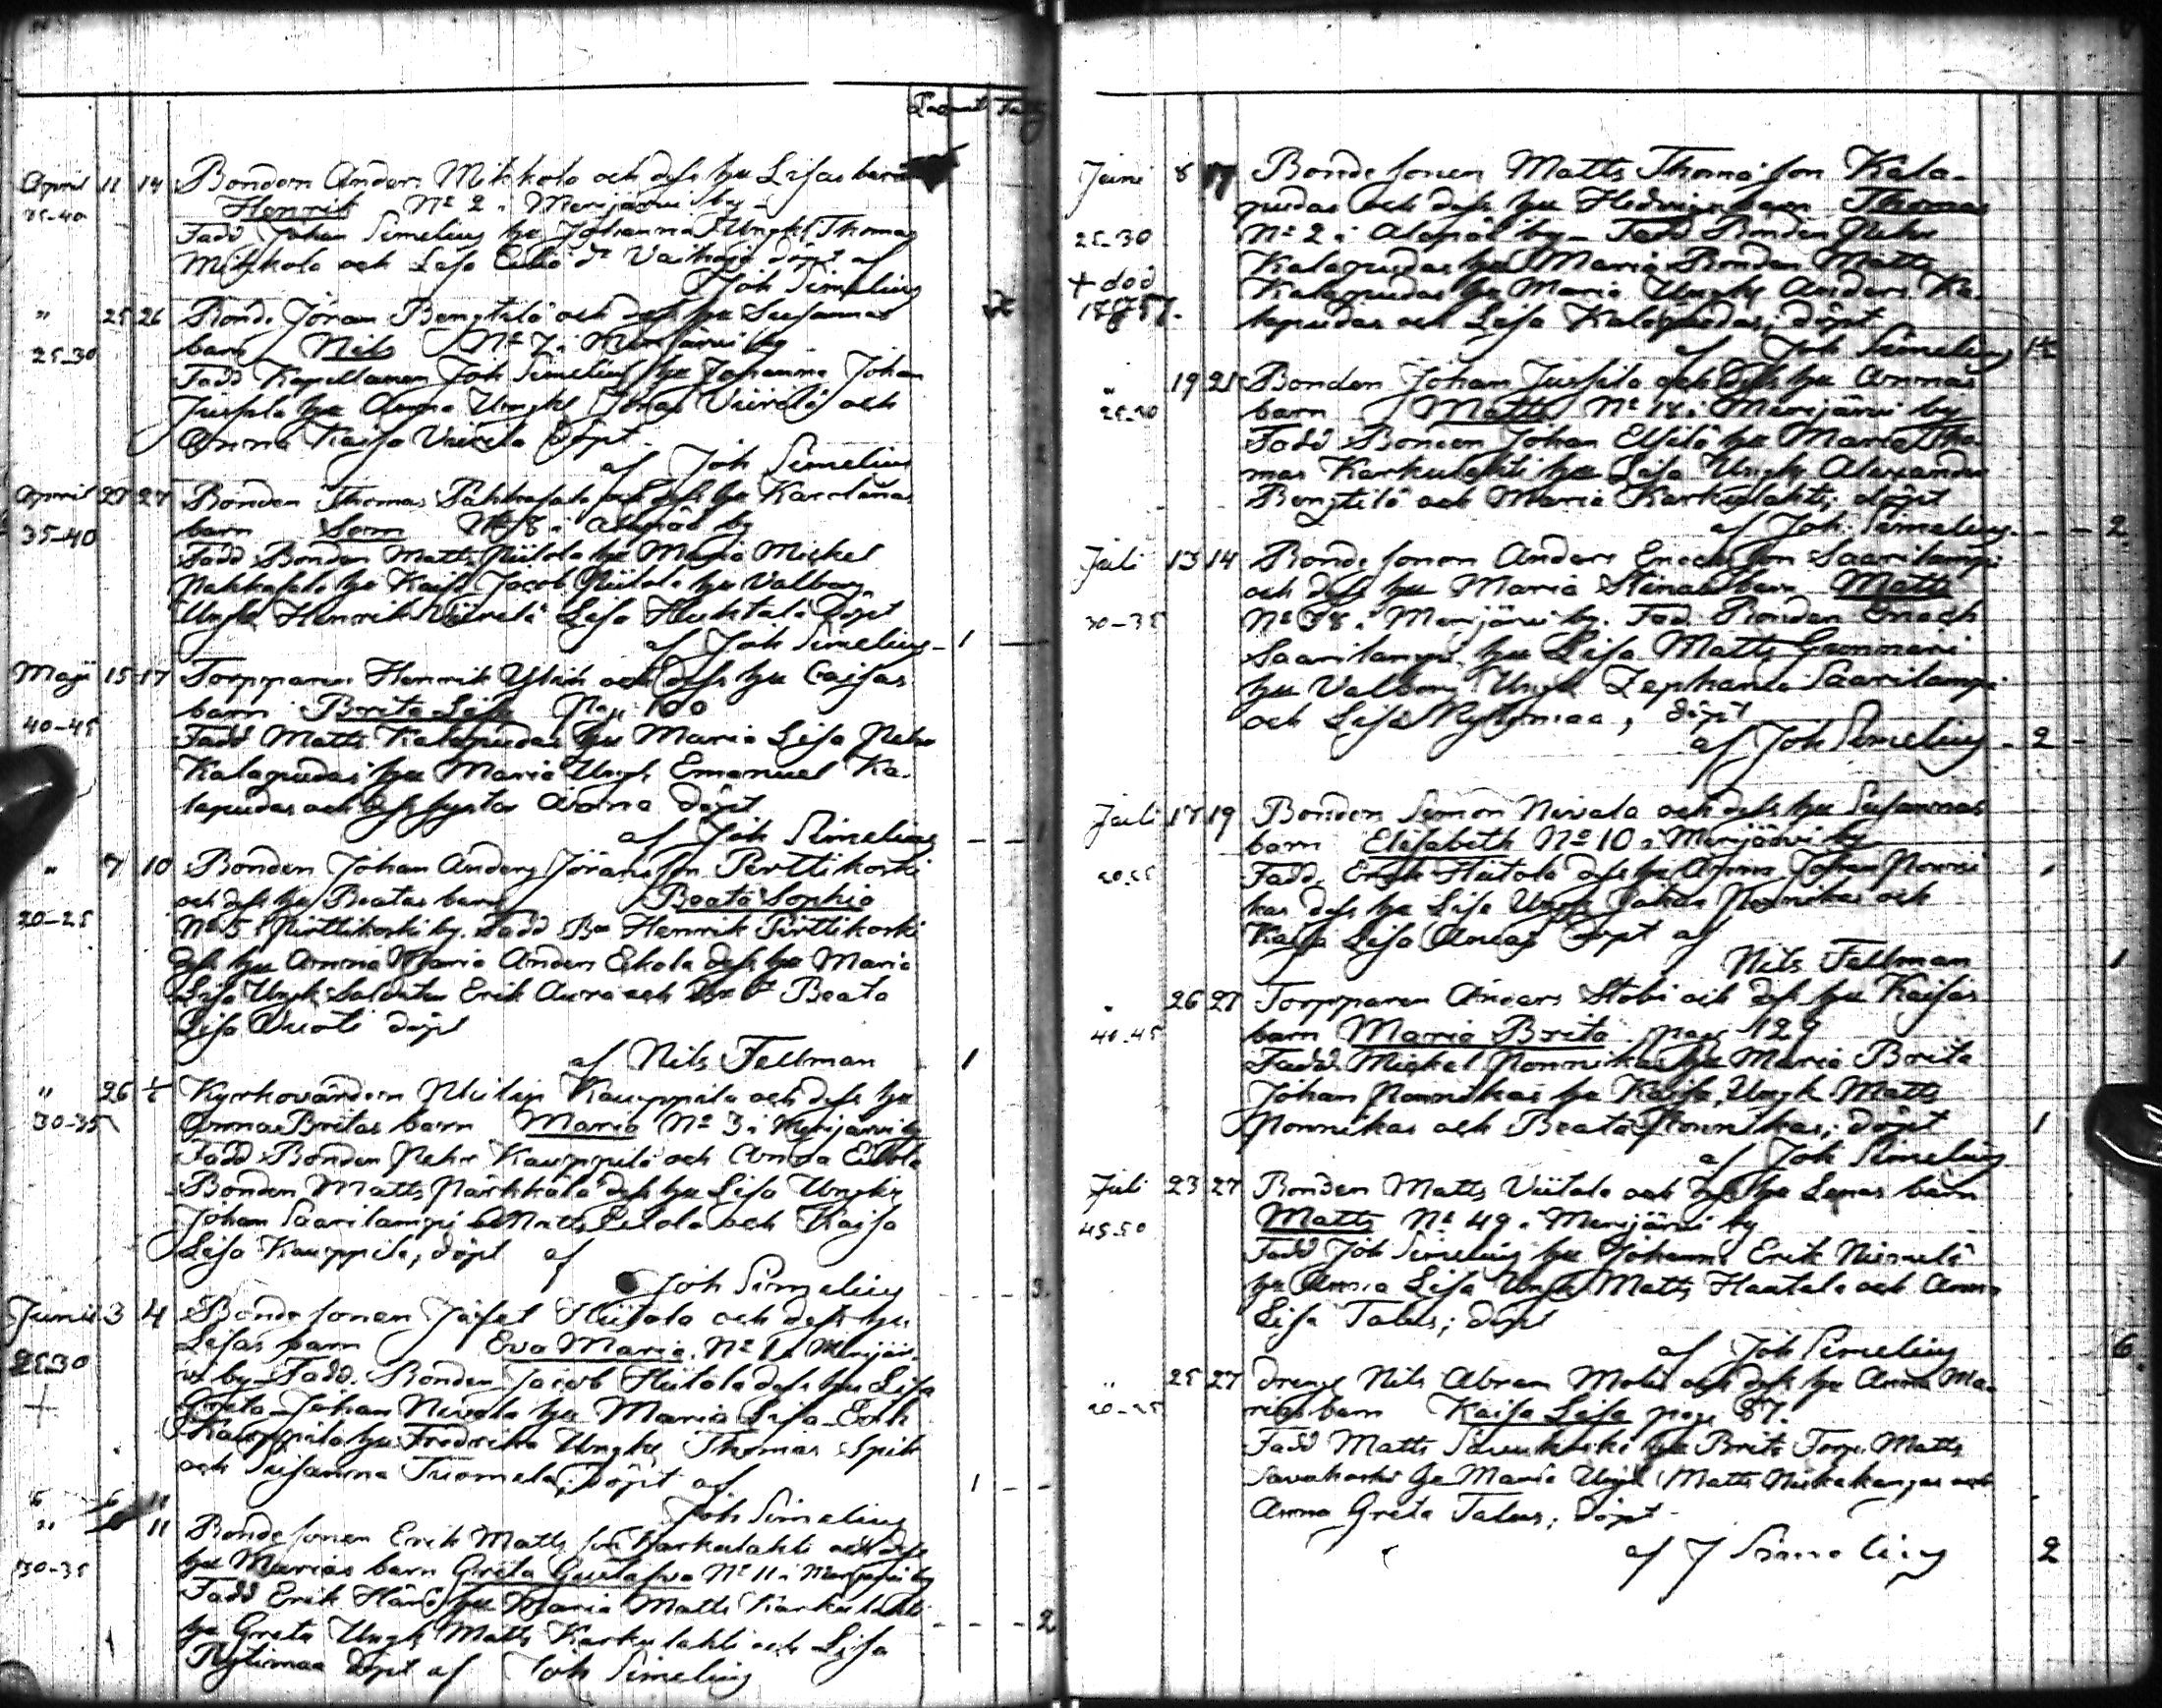 April 11 14 Bonden Anders Mikkola och dess hu Lisas barn
35-40 Henrik No 2 i Merijärvi by
Fadd Johan Simelius hu Johanna Ungk Thomas
Mikkola och Lisa döpt af
Joh Simelius
" 25 26 Bond. Jöran Bengtilä och dess hu Susannas
25-30 barn Nils No 7 i Merijärvi by
Fadd Kapellanen Joh Simelius hu Johanna Johan
Juffila hu Anna Ungkl Jonas Viirelä och
Anna Kaisa Viirelä döpt
af Joh Simelius
April 27 Bonden Thomas och dess hu Karolinas
35-40 barn No 8 i Alapää by
Fadd Bonden Matts Hiitola hu Maria Mickel
hu Kaisa Jacob Hiitola hu Valborg
Ungk Henrik Viirelä Lisa Huhtala döpt
af Joh Simelius - 1
Maji 15 17 Torpparen Henrik och dess hu Caisas
40-45 barn Brita Lisa Pag: 100
Fadd Matts Kalapudas hu Maria Lisa Pehr
Kalapudas hu Maria Ungk Emanuel Ka-
lapudas och dess syster Anna döpt
af Joh Simelius - - 1
" 7 10 Bonden Johan Anders Jöransson Pirttikoski
och dess hu Beatas barn Beata Sophia
20-25 No 5 i Pirttikoski by. Fadd Bn Henrik Pirttikoski
dess hu Anna Maria Anders Eskola dess hu Maria
Lisa Ungk Soldaten Erik Aura och Beata
Lisa döpt
af Nils Fellman 1
" 26 Kyrkovärden Philip Kauppila och dess hu
30-35 Anna Britas barn Maria No 3 i Merijärvi by
Fadd Bonden Pehr Kauppila och Anna Eilola
Bonden Matts Närhkälä dess hu Lisa Ungkr
Johan Saarilampi Matts Eilola och Kaisa
Lisa Kauppila, döpt af
Joh Simelius 3
Junii 3 4 Bondesonen Jafet Hiitola och dess hu
25-30 Lisas barn Eva Maria. No 1 i Merijär-
vi by Fadd. Bonden Jacob Hiitola dess hu Lisa
+ Greta Johan Nivala hu Maria Lisa Erik
Kauppila hu Fredrika Ungkl Thomas Spik
och Susanna Tuomela, döpt af 1 - -
Joh Simelius
" 6 11 Bondesonen Erik Mattsson Karkulahti och dess
30-35 hu Marias barn Greta Gustafva No 11 i Merijärvi by
Fadd Erik hu Maria Matts Karkulahti
hu Greta Ungk Matts Karkulahti och Lisa - - - 2
Rytimaa döpt af Joh Simelius
Juni 8 17 Bondesonen Matts Thomasson Kala-
pudas och dess hu Hedvigs barn Thomas
25-30 No 2 i Alapää by - Fadd Bonden Pehr
Kalapudas hu Maria Bonden Matts
+ död Kalapudas hu Maria Ungkl Anders Ka-
lapudas och Lisa Kalapudas; döpt
af Joh Simelius
" 19 21 Bonden Johan Jussila och dess hu Annas
barn Matts No 18 i Merijärvi by
Fadd Bonden Johan Elsilä hu Maria Tho-
mas Karkulahti hu Lisa Ungk Alexander
Bengtilä och Maria Karkulahti; döpt
af Joh. Simelius - - 2
Juli 13 14 Bondesonen Anders Enochsson Saarilampi
och dess hu Maria Stinas barn Matts
30-35 No 38 i Merijärvi by. Fad. Bonden Enoch
Saarilampi hu Lisa Matts Gunnari
hu Valborg Ungk Zephania Saarilampi
och Lisa Rytymaa, döpt
af Joh Simelius - 2 - -
Juli 17 19 Bonden Simon Nivala och dess hu Susannas
barn Elisabeth No 10 i Merijärvi by
Fadd. Erik Hiitola dess hu Anna Johan Ponni-
kas dess hu Lisa Ungk Johan Ponnikas och
Kaisa Lisa döpt af
Nils Fellman 1
" 26 27 Torpparen Anders Stobi och dess hu Kaisas
40-45 barn Maria Brita pag 129
Fadd Mickel Ponnikas hu Maria Brita
Johan Ponnikas hu Kaisa, Ungk Matts
Ponnikas och Beata Ponnikas; döpt 1
af Joh Simelius
Juli 23 27 Bonden Matts Viitala och dess hu Lenas barn
45-50 Matts No 49 i Merijärvi by
Fadd Joh Simelius hu Johanna Erik Niemelä
hu Anna Lisa Ungk Matts Haatala och Anna
Lisa Talus; döpt
af Joh Simelius 6
" 25 27 Dreng Nils Abram och dess hu Anna Ma-
20-25 rias barn Kaisa Lisa pag. 87.
Fadd Matts Savukoski hu Brita Torp. Matts
Savakoski hu Maria Ungk Matts Niskakangas och
Anna Greta Talus; döpt
af J Simelius 2